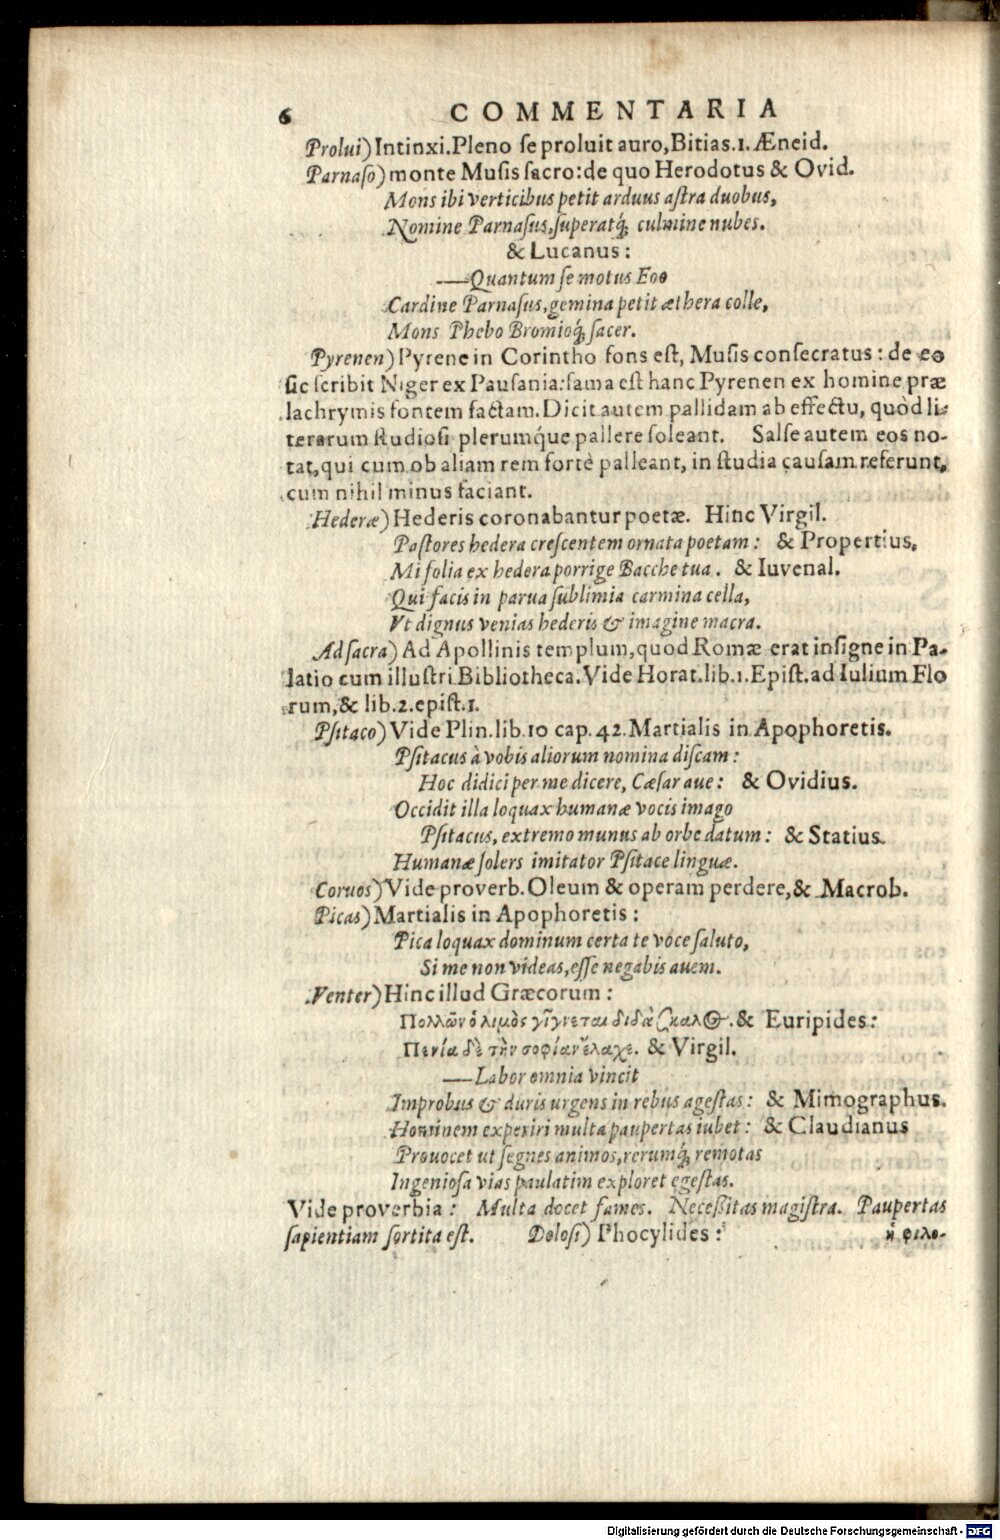 6 COMMENTARIA
Prolui) Intinxi. Pleno se proluit auro, Bitias. 1. Æneid.
Parnaso) monte Musis sacro: de quo Herodotus & Ovid.
Mons ibi verticibus petit arduus astra duobus,
Nomine Parnasus, superatq́; culmine nubes.
& Lucanus:
—Quantum se motus Eoo
Cardine Parnasus, gemina petit æthera colle,
Mons Phebo Bromioq́; sacer.
Pyrenen) Pyrene in Corintho fons est, Musis consecratus: de eo
sic scribit Niger ex Pausania: fama est hanc Pyrenen ex homine præ
lachrymis fontem factam. Dicit autem pallidam ab effectu, quòd li-
terarum studiosi plerumq́ue pallere soleant. Salse autem eos no-
tat, qui cum ob aliam rem fortè palleant, in studia causam referunt,
cum nihil minus faciant.
Hederæ) Hederis coronabantur poetæ. Hinc Virgil.
Pastores hedera crescentem ornata poetam: & Propertius,
Mi folia ex hedera porrige Bacche tua. & Iuvenal.
Qui facis in parua sublimia carmina cella,
Vt dignus venias hederis & imagine macra.
Ad sacra) Ad Apollinis templum, quod Romæ erat insigne in Pa-
latio cum illustri Bibliotheca. Vide Horat. lib. 1. Epist. ad Iulium Flo
rum, & lib. 2. epist. 1.
Psitaco) Vide Plin. lib. 10 cap. 42. Martialis in Apophoretis.
Psitacus à vobis aliorum nomina discam:
Hoc didici per me dicere, Cæsar aue: & Ovidius.
Occidit illa loquax humanæ vocis imago
Psitacus, extremo munus ab orbe datum: & Statius.
Humanæ solers imitator Psitace linguæ.
Coruos) Vide proverb. Oleum & operam perdere, & Macrob.
Picas) Martialis in Apophoretis:
Pica loquax dominum certa te voce saluto,
Si me non videas, esse negabis auem.
Venter) Hinc illud Græcorum:
Πολλῶν ὁ λιμὸς γίγνεται διδάσκαλος. & Euripides:
Πενία δὲ τὴν σοφίαν ἔλαχε. & Virgil.
—Labor omnia vincit
Improbus & duris urgens in rebus agestas: & Mimographus.
Hominem experiri multa paupertas iubet: & Claudianus
Prouocet ut segnes animos, rerumq́; remotas
Ingeniosa vias paulatim exploret egestas.
Vide proverbia: Multa docet fames. Necessitas magistra. Paupertas
sapientiam sortita est. Dolosi) Phocylides: ἡ φιλο-
Digitalisierung gefördert durch die Deutsche Forschungsgemeinschaft - DFG